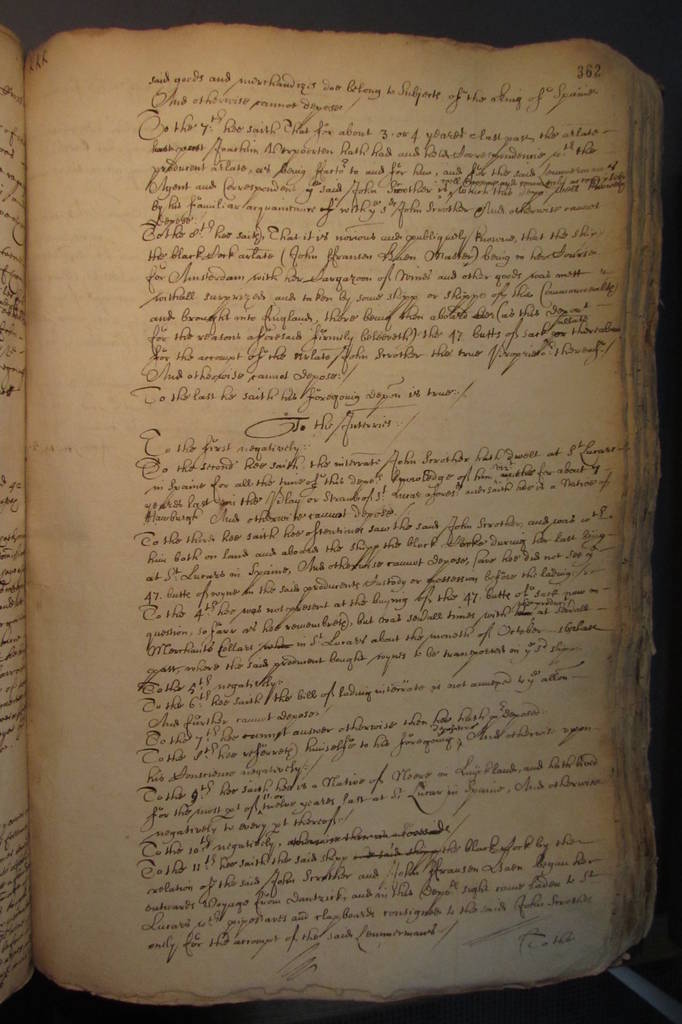 362
said goods and merchandizes doe belong to Subjects of the King of Spaine
And otherwise cannot depose
To the 7th. hee saith That for about 3. or 4 yeares last past the arlate
Joachim hath had and held Correspondencie wth. the
producent arlate, as being factor to and for him, and for the said
Agent and Correspondent ye said John Scrother
by his familiar acquaintance of with ye sd John Scrother And otherwise cannot
depose
To the 8th. hee saith, That it is notorious and publiquely knowne, that the shipp
the black Cock arlate (John ffransen Master) being in her Course
for Amsterdam with her Cargazoon of Wines and other goods was mett
withall surprized and taken by some shipp or shipps of this Commonwealth
and brought into England, there being then aboard her (as this depont
for the reasons aforesaid firmely beleeveth) the 47 butts of sack or thereabouts
for the accompt of the arlate John Scrother the true Proprietor thereof:
And otherwise cannot depose:/
To the last he saith his foregoing depon is true:/
To the Interries:/
To the first negatively:
To the second hee saith the interrate John Scrother hath dwelt at St Lucars
in Spaine for all the tyme of this depts knowledge of him for about 7
yeares last in the or of St. Lucar aforesd and saith hee is a Native of
Hamburgh And otherwise cannot depose.
To the third hee saith hee oftentimes saw the said John Scrother, and was wth
him both on land and aboard the shipp the black Cocke during her last being
at St. Lucars in Spaine, And otherwise cannot depose, save hee did not see ye
47. butts of wyne in the said producents Custody or possession before the lading
To the 4th. hee was not present at the buying of the 47. butts of sack now in
question, so farr as hee remembreth, but was severall times with the producent at severall
Merchants Cellars in St Lucars about the moneth of October last
past, where the said producent bought wynes to be transported in ye sd shipp
To the 5th. negatively.
To the 6th. hee saith the bill of lading interrate is not annexed to ye allon
And further cannot depose.
To the 7th. hee cannot answer otherwise then hee hath predeposed
To the 8th. hee referreth himselfe to his foregoing deposition, And otherwise upon
his Conscience negatively:/
To the 9th. hee saith hee is a Native of in Luykland, and hath lived
for the most pt of twelve yeares last at St. Lucar in Spaine, And otherwise
negatively to every pt thereof:
To the 10th. negatively,
To the 11th. hee saith the said shipp the black Cock by the
relation of the said John Scrother and John ffransen began her
outwards Voyage from Dantzick, and in this depts sight came laden to St
Lucars wth pipestaves and clapboards consigned to the said John Scrother
only for the accompt of the said
To the